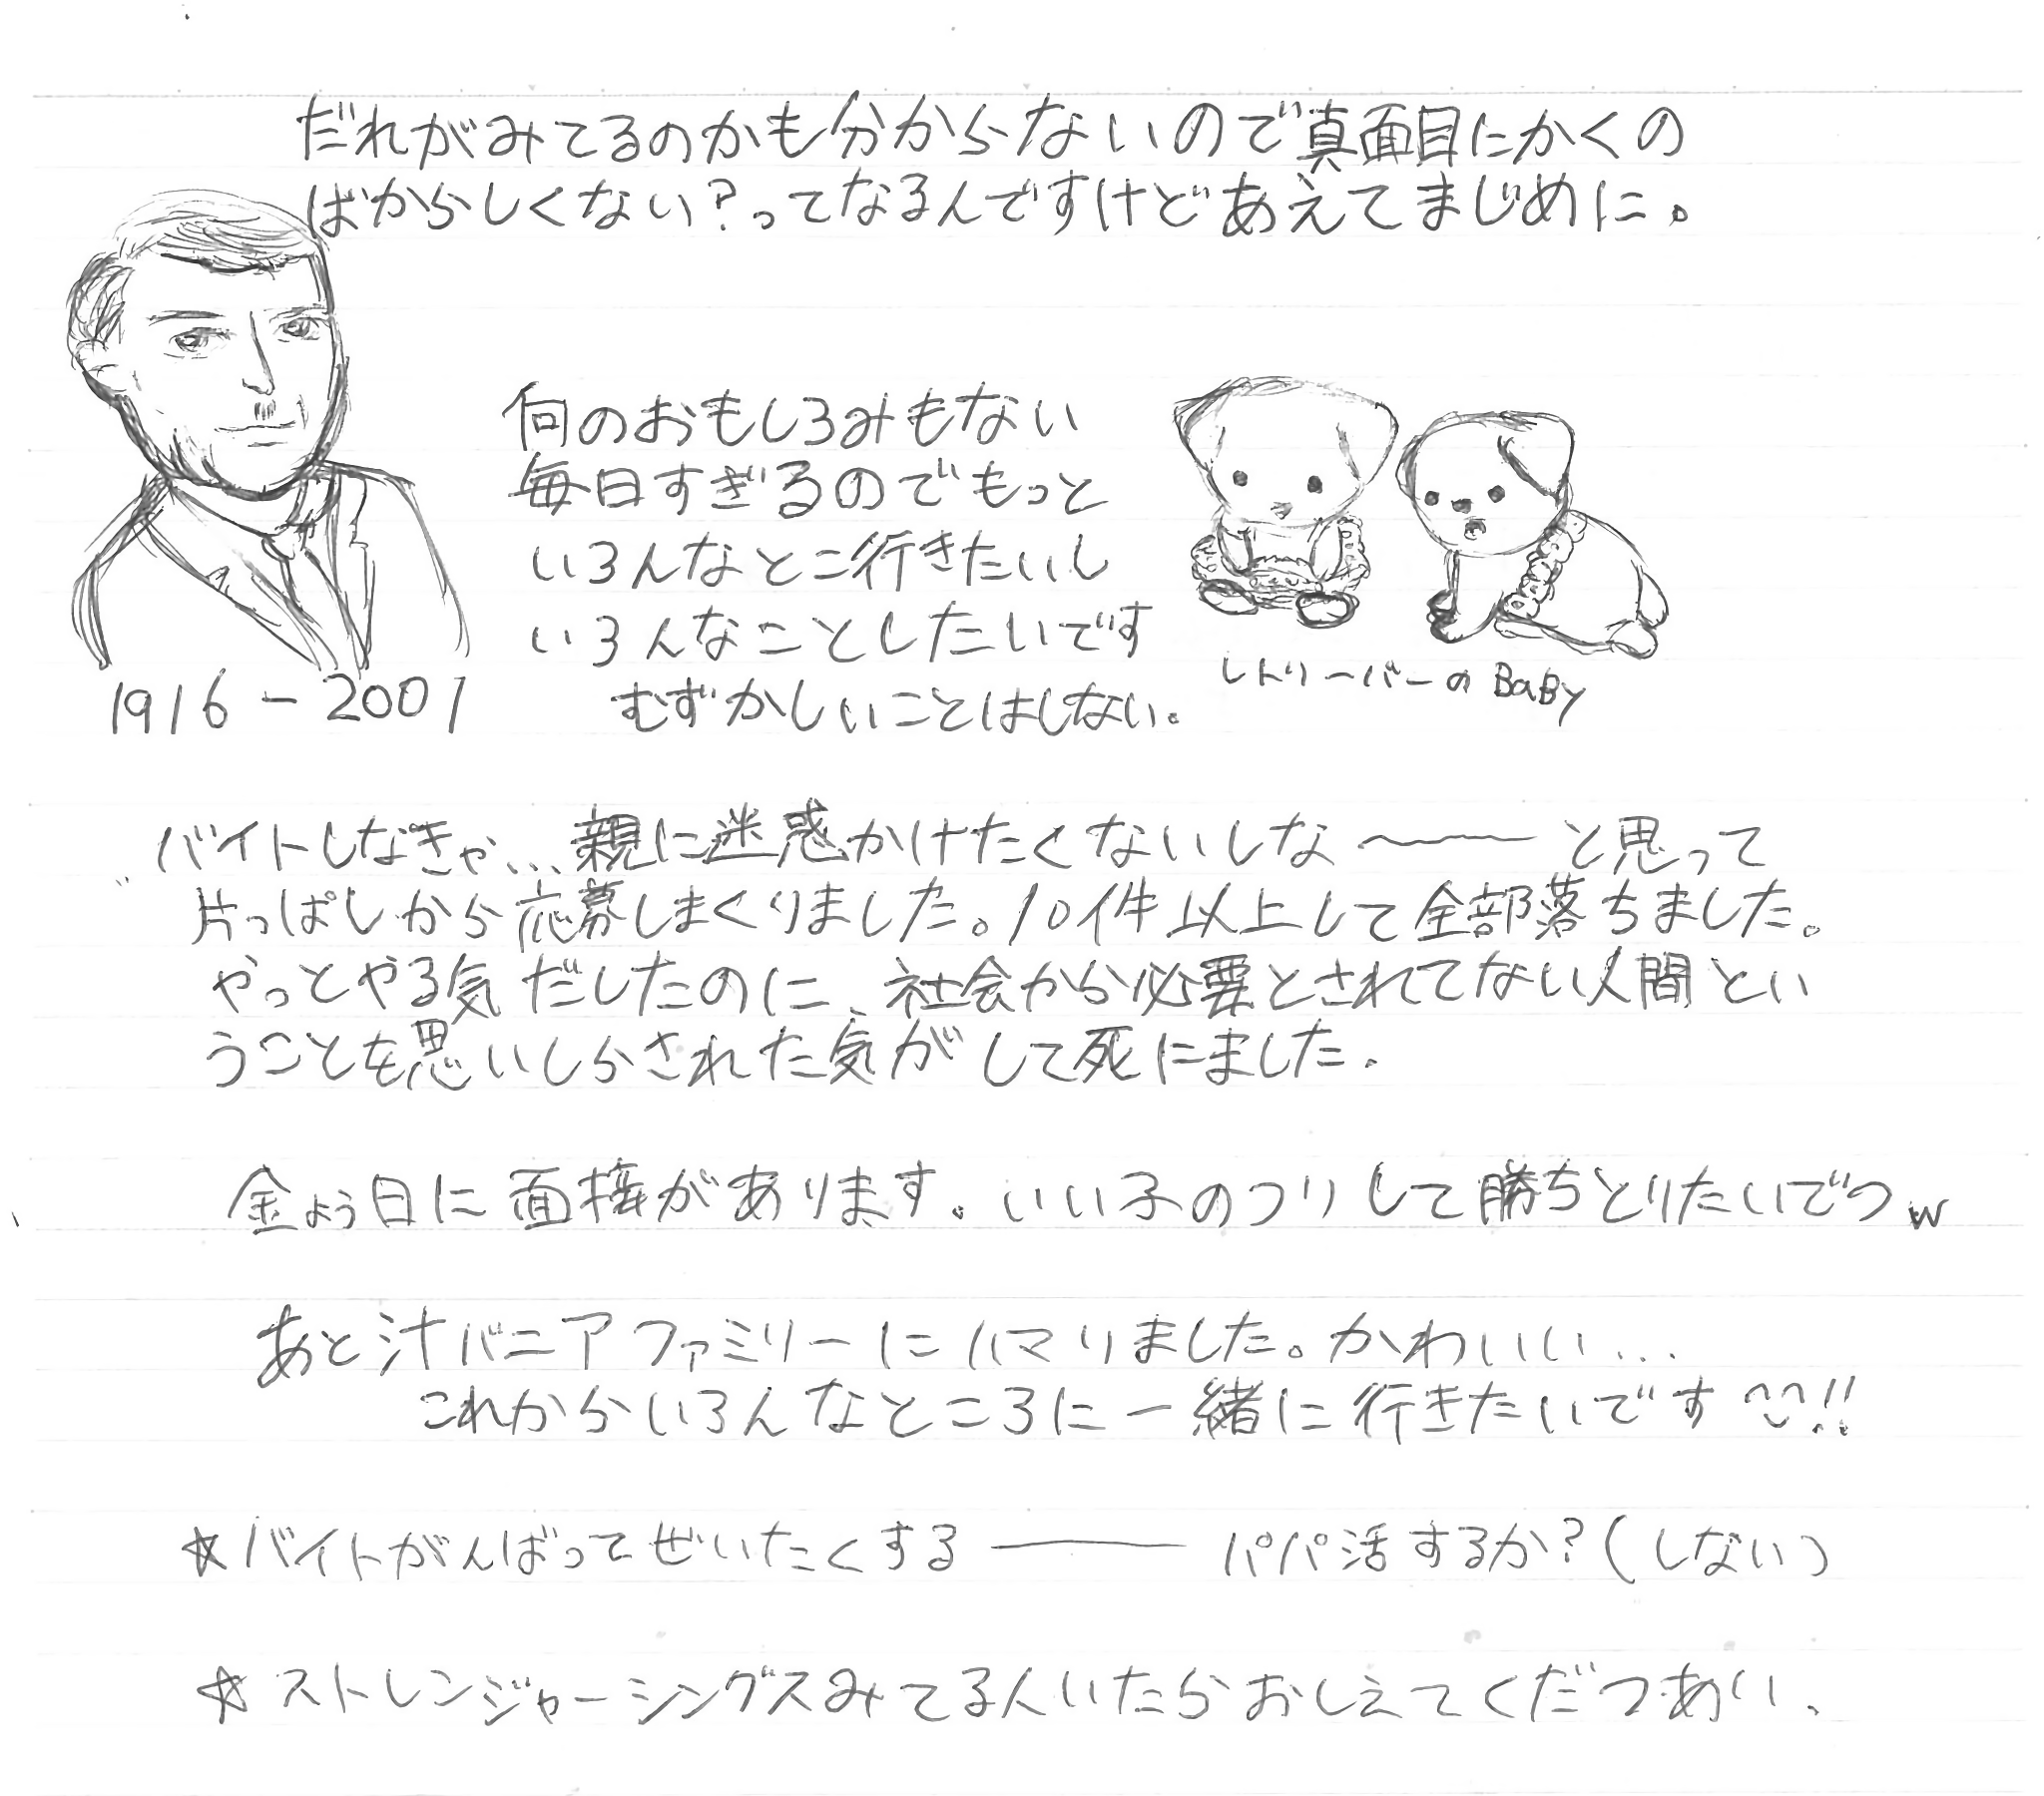 だれがみてるのかも分からないので真面目にかくの
ばからしくない？ってなるんですけどあえてまじめに。
何のおもしろみもない
毎日すぎるのでもっと
いろんなとこ行きたいし
いろんなことしたいです
むずかしいことはしない。
1916-2001
レトリーバーのBaBy
バイトしなきゃ…親に迷惑かけたくないしな〜〜と思って
片っぱしから応募しまくりました。10件以上して全部落ちました。
やっとやる気だしたのに、社会から必要とされてない人間とい
うことを思いしらされた気がして死にました.
金よう日に面接があります。いい子のフリして勝ちとりたいでつw
あと汁バニアファミリーにハマりました。かわいい…
これからいろんなところに一緒に行きたいです!!
☆バイトがんばってぜいたくする――パパ活するか？(しない)
☆ストレンジャーシングスみてる人いたらおしえてくだつあい、